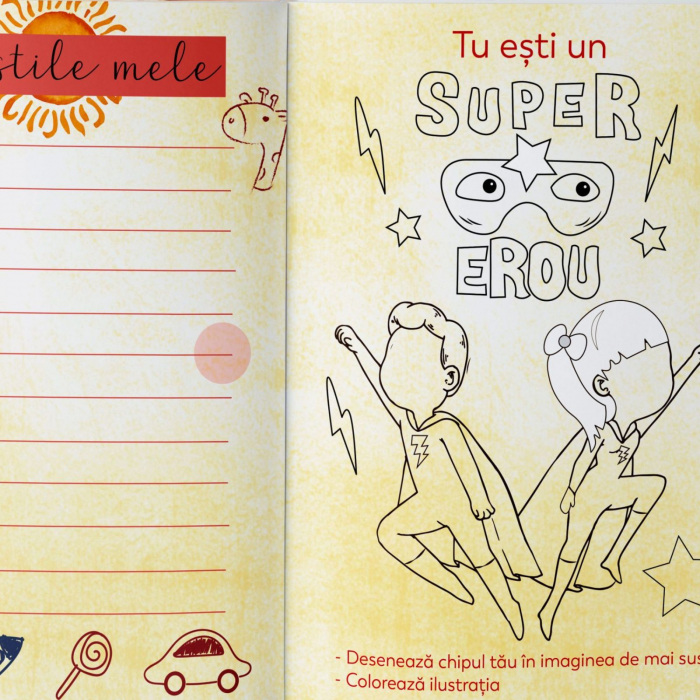 mele
Tu ești un
SUPER
EROU
- Desenează chipul tău în imaginea de mai
- Colorează ilustrația